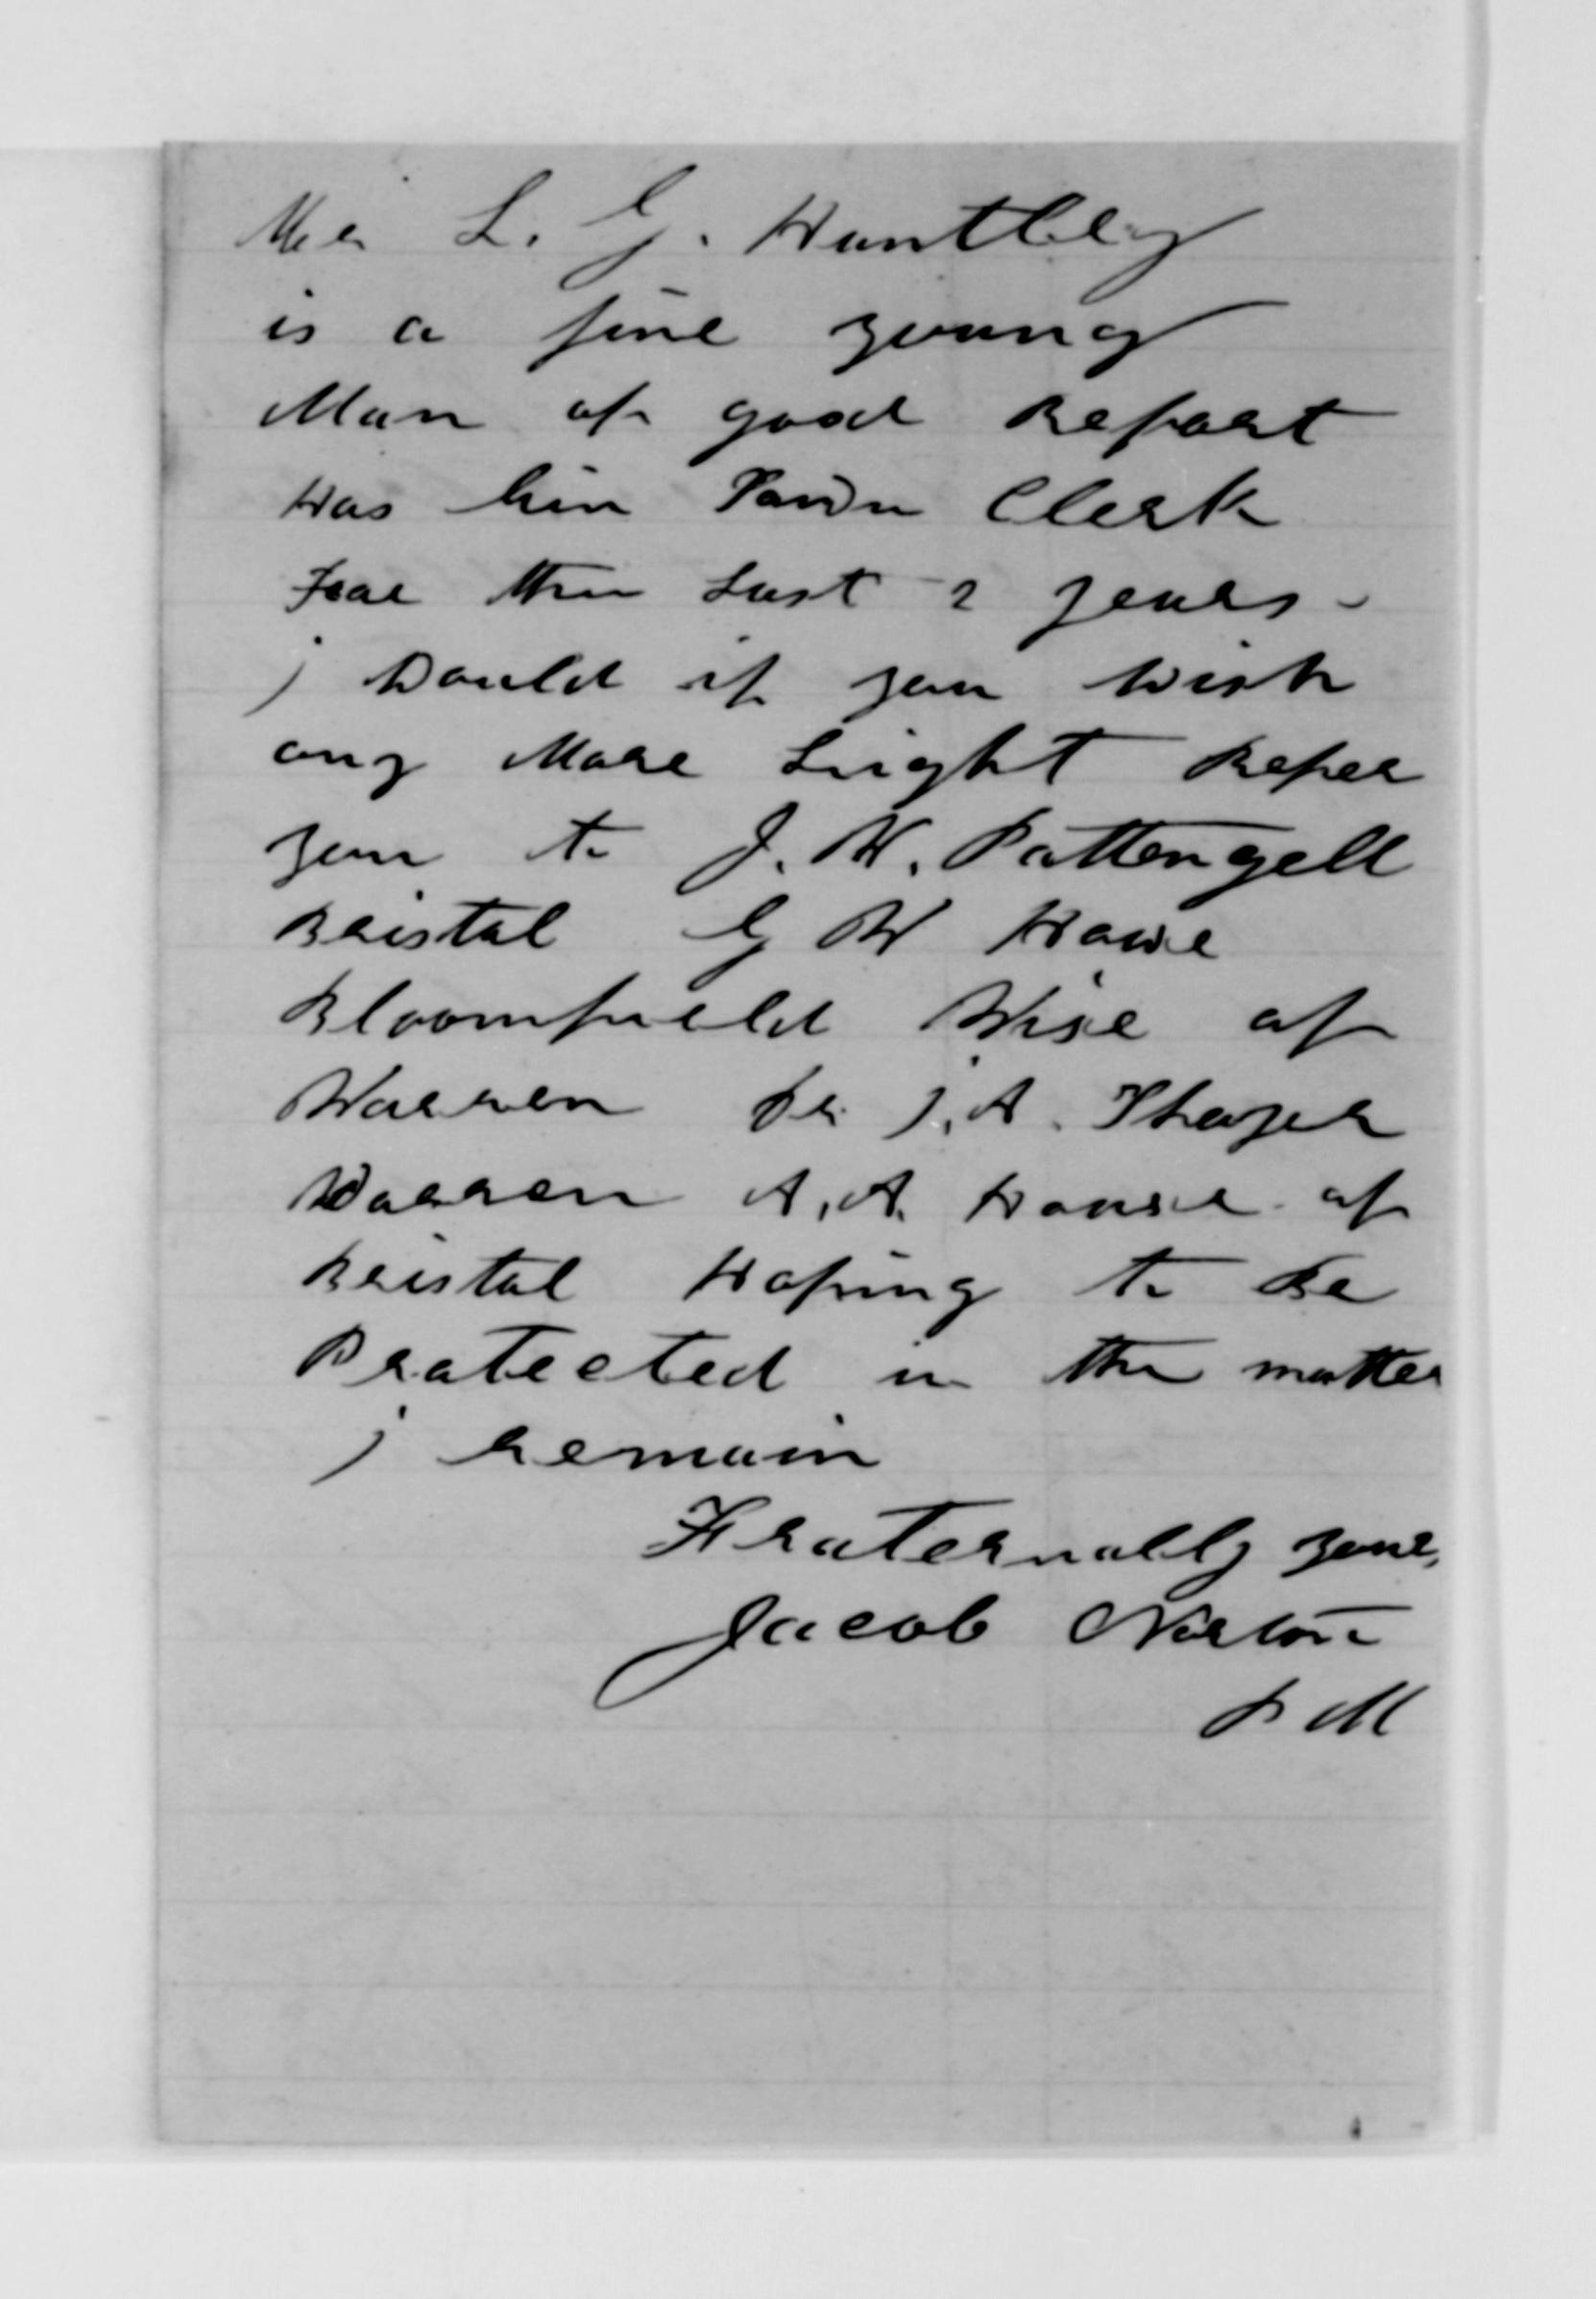 Mr L. G. Huntley
is a fine young
Man of good Report
Has bin Town Clerk
For the Last 2 years -
i Would if you Wish
any More Light Refer
you to J. W. Pattengell
Bristol G W Howe
Bloomfield Wise of
Warren Dr J. A. Thayer
Warren A. A. House of
Bristol Hoping to Be
Protected in the matter
i remain
Fraternally your
Jacob Norton
P M